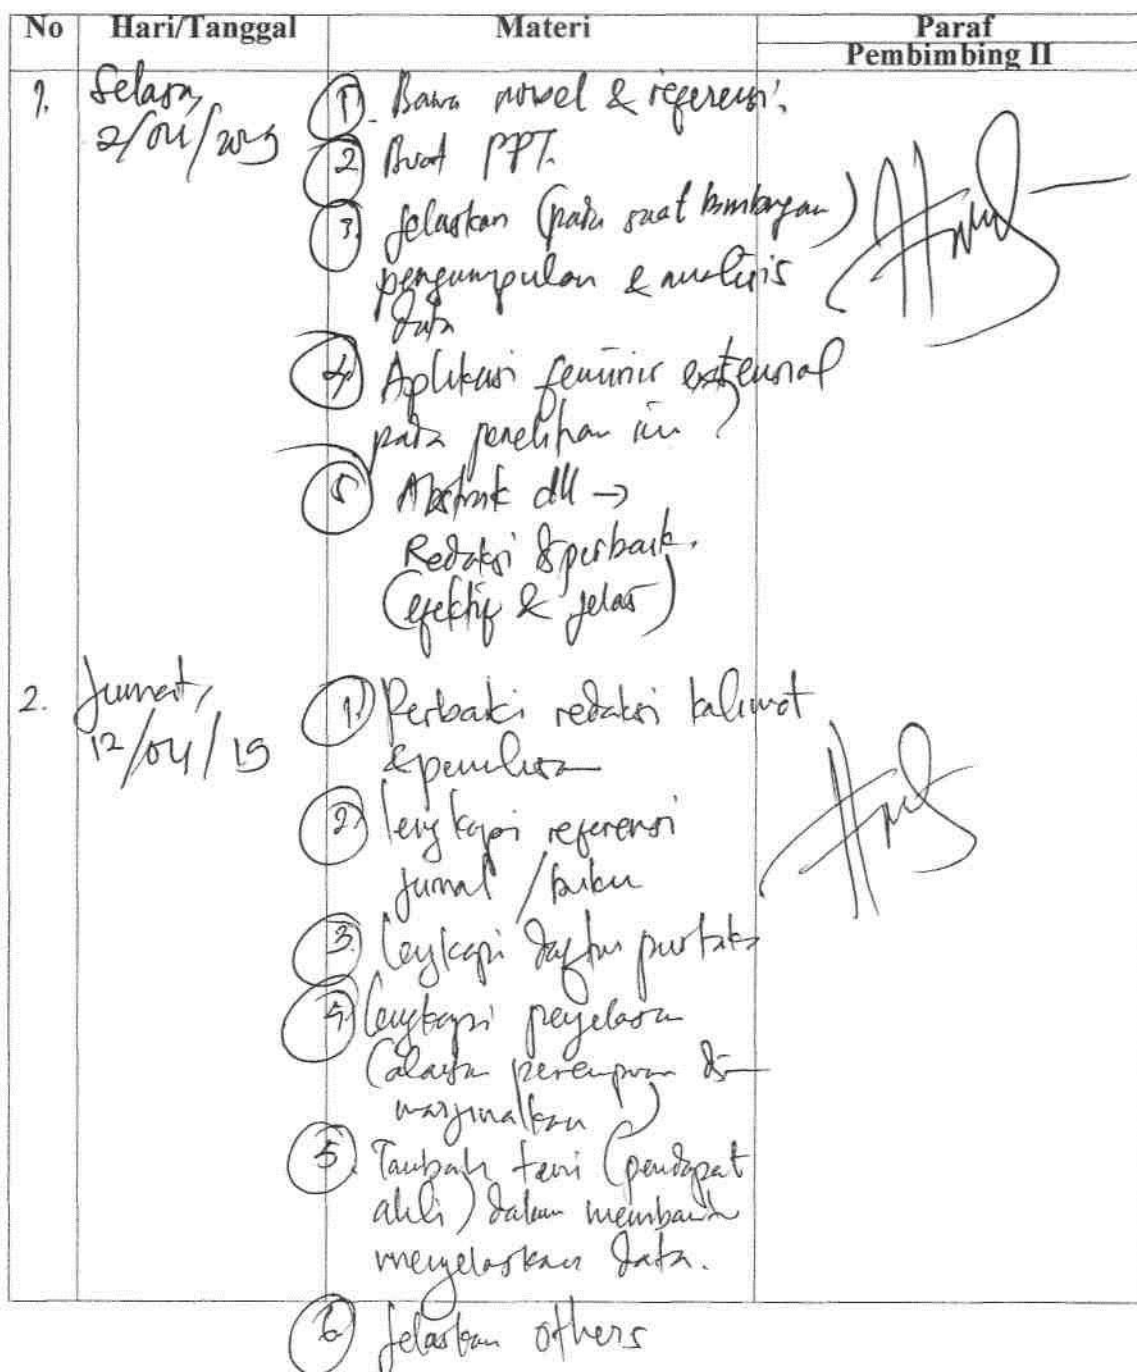 No Hari/Tanggal Materi Paraf
Pembimbing II
1. Selasa, 2/04/2019
① Bawa novel & referensi.
② Buat PPT.
③ Jelaskan (pada saat bimbingan)
pengumpulan & analisis
data
④ Aplikasi feminis extensial
pada penelitian ini ?
⑤ Abstrak dll →
Redaksi diperbaik.
(efektif & jelas)
2. Jumat, 12/04/19
① Perbaiki redaksi kalimat
& penulisan
② lengkapi referensi
jurnal / buku
③ lengkapi daftar pustaka
④ lengkapi penjelasan
(alasan perempuan di-
marjinalkan)
⑤ Tambah teori (pendapat
ahli) dalam membantu
menjelaskan data.
⑥ jelaskan others